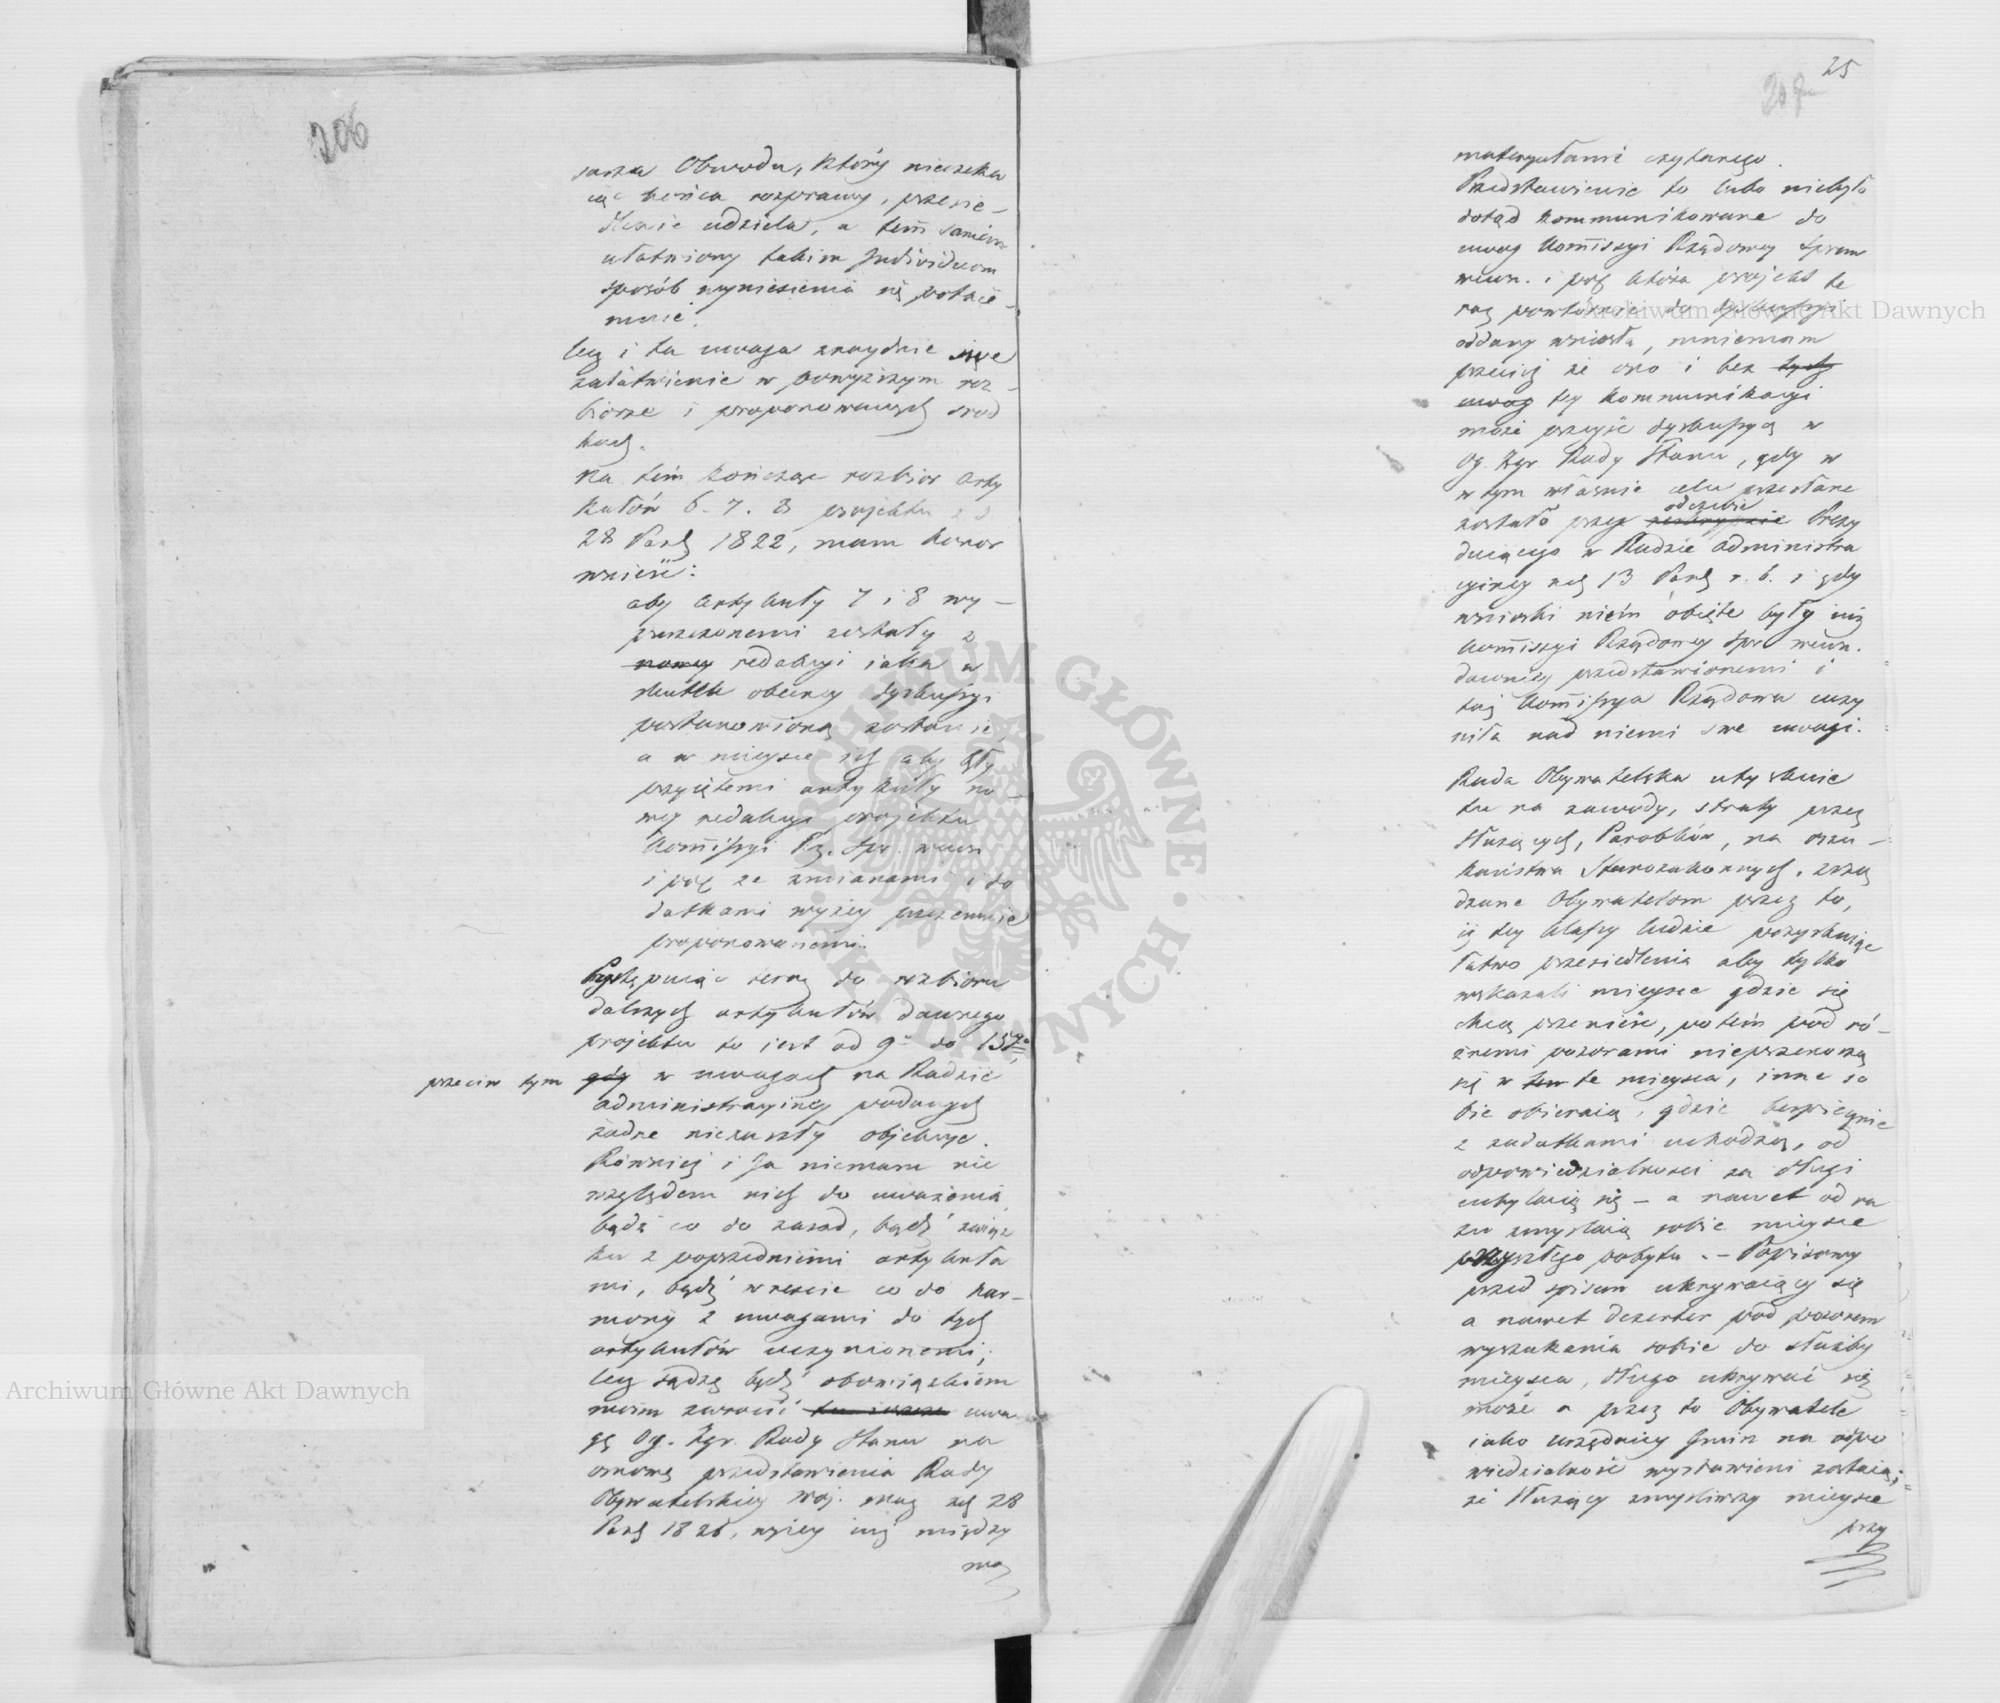 206
sarza Obwodu, który nieczeka
iąc końca rozprawy, przesie-
dlenie udziela, a tem samem
ułatwiony takim Individuom
sposób wyniesienia się potaie-
mnie.
lecz i ta uwaga znaydnie swe
załatwienie w powyższym roz-
biorze i proponowanych środ
kach.
Na tem kończąc rozbior arty
kułów 6. 7. 8 projektu z d
28 Paźd 1822, mam honor
wnieść:
aby artykuły 7 i 8 wy-
puszczonemi zostały z
nowey redakcyi iaka w
skutek obecney dyskussyi
postanowioną zostanie,
a w mieysce ich aby były
przyiętemi artykuły no-
wey redakcyi projektu
Kommissyi Rz. Spr. wewn
i pol ze zmianami i do
datkami wyżey przezemnie
proponowanemi.
Przystępuiąc teraz do rozbioru
dalszych artykułów dawnego
projektu to iest od 9° do 157°
przeciw tym gdy w uwagach na Radzie
administracyiney podanych
żadne niezaszły objekcye.
Również i Ja niemam nic
względem nich do uważenia
bądź co do zasad, bądź związ
ku z poprzedniemi artykuła
mi, bądź wreście co do har-
mony z uwagami do tych
artykułów uczynionemi;
lecz sądzę być obowiązkiem
moim zwrocić uwa
gę Og. Zgr. Rady Stanu na
osnowę przedstawienia Rady
Obywatelskiey Woj. Maz z d 28
Paźd 1826, wyżey iuż między
ma
25
207
materyałami czytanego.
Przedstawienie to lubo niebyło
dotąd kommunikowane do
uwag Kommissyi Rządowey Spraw
wewn. i pol która projekt te
raz powtórnie do dyskussyi
oddany wniosła, mniemam
przecież że ono i bez tych
uwag tey kommunikacyi
może przeyść dyskussyą w
Og. Zgr. Rady Stanu, gdy w
w tym właśnie celu przesłane
odezwie
zostało przez Prezy
duiącego w Radzie administra
cyiney z d 13 Paźd r. b. i gdy
wnioski niem obięte były iuż
Kommissyi Rządowey Spr wewn.
dawniey przedstawionemi i
taż Kommissya Rządowa uczy
niła nad niemi swe uwagi.
Rada Obywatelska utyskuie
tu na zawody, straty przez
służących, Parobków, na oszu-
kaństwa Starozakonnych, zrzą
dzane Obywatelom przez to,
iż tey klassy ludzie pozyskuiąc
łatwo przesiedlenia aby tylko
wskazali mieysce gdzie się
chcą przenieść, potem pod ró-
żnemi pozorami nieprzenoszą
się w ten te mieysca, inne so
bie obieraią, gdzie bespiecznie
z zadatkami uchodzą, od
odpowiedzialności za długi
uchylaią się - a nawet od ra
zu zmyślaią sobie mieysce
przyszłego pobytu. - Popisowy
przed spisem ukrywaiący się
a nawet dezerter pod pozorem
wyszukania sobie do służby
mieysca, długo ukrywać się
może a przez to Obywatele
iako urzędnicy Gmin na odpo
wiedzialność wystawieni zostaią;
że służący zmyśliwszy mieysce
przy
Archiwum Główne Akt Dawnych
Archiwum Główne Akt Dawnych
ARCHIWUM GŁÓWNE · AKT DAWNYCH ·